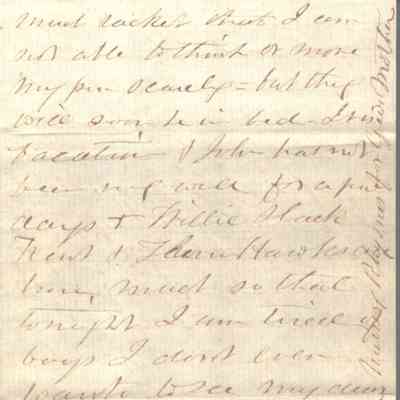 much racket that I am
not able to think or move
my pen scarcely - but they
will soon be in bed -
Vacation & John has not
been very well for a few
days & Willie Shack
Kent &
here, much so that
tonight I am tired of
boys I dont even
want to see my dear
for your Mother